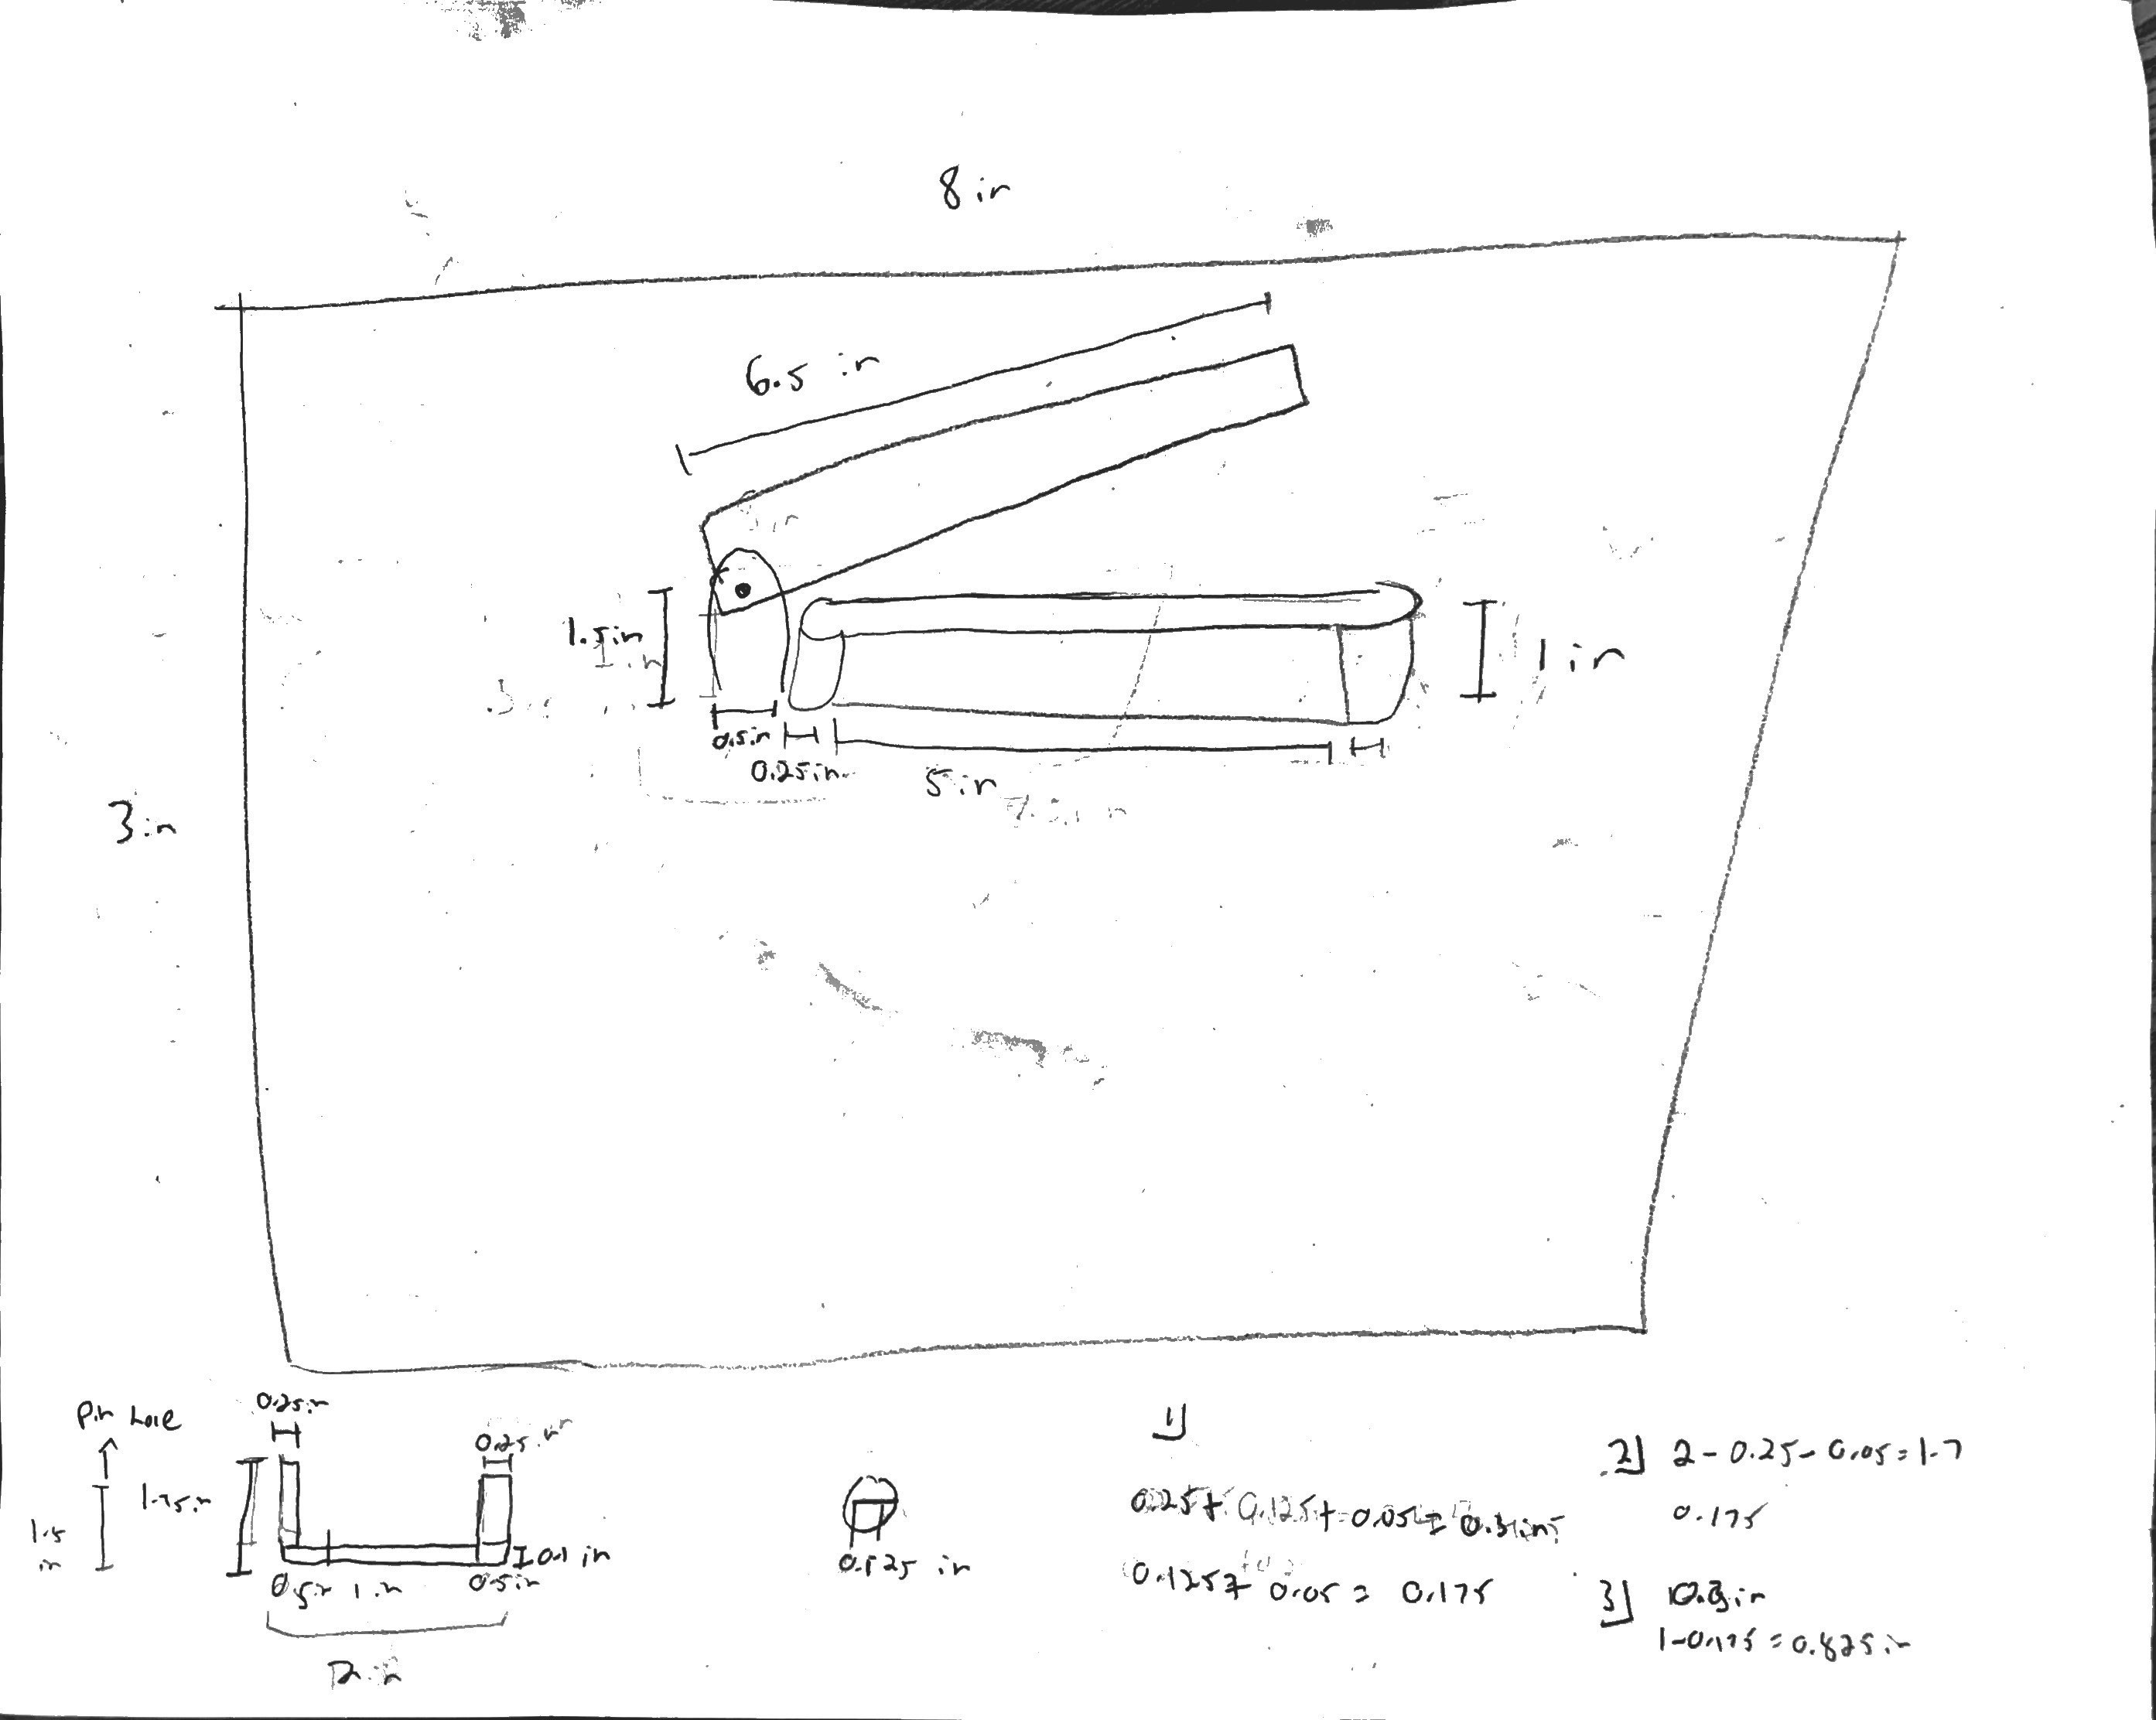 8 in
6.5 in
1.5in
1 in
0.5in
0.25in
5 in
3 in
Pin hole
0.25in
0.25 in
1.75in
1.5
in
0.1 in
0.5in 1 in
0.5in
2 in
0.125 in
1)
0.25+ 0.125+ 0.05=
0.125+ 0.05 = 0.175
2) 2 - 0.25 - 0.05 = 1.7
0.175
3)
1-0.175 = 0.825 in